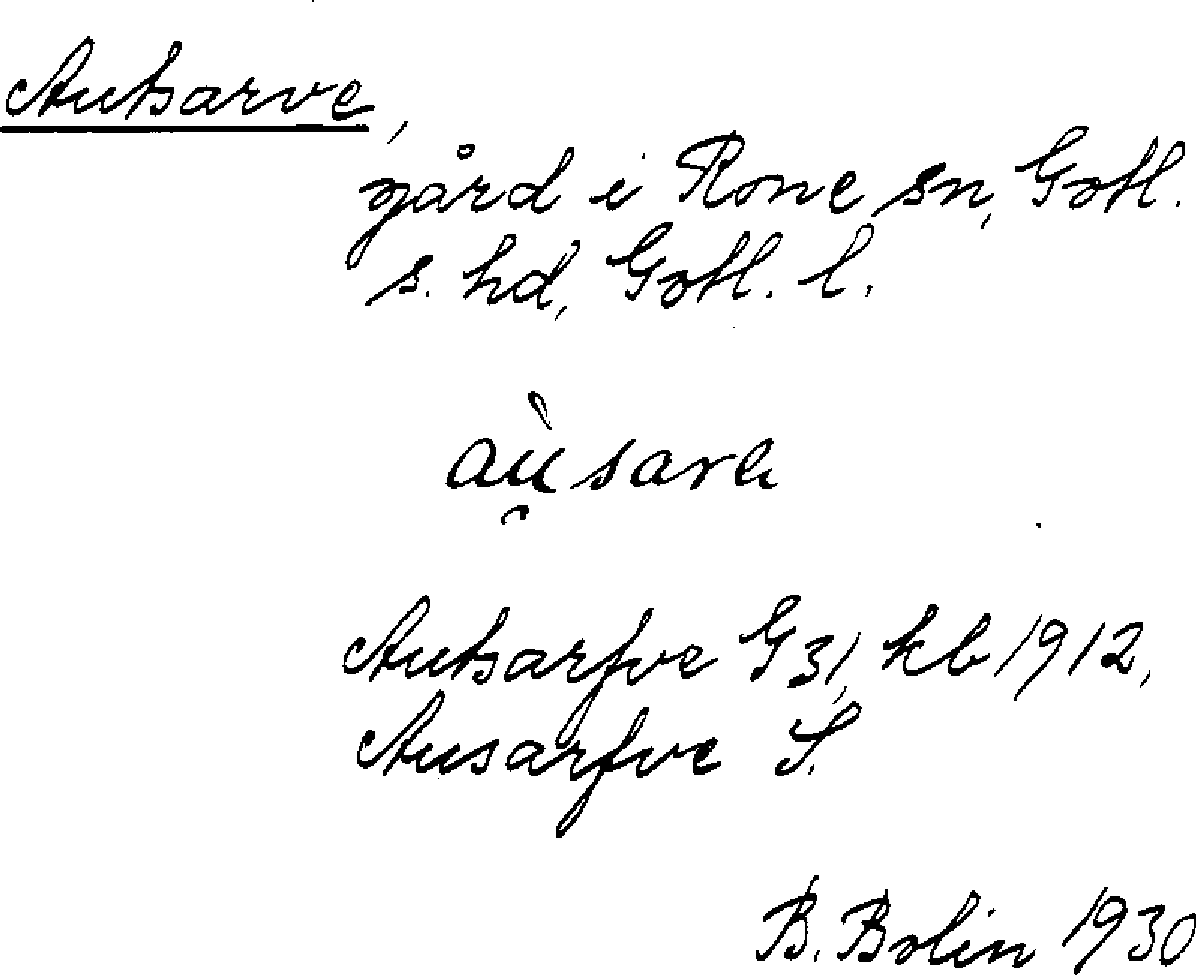 Autsarve,
gård i Rone sn, Gotl.
s. hd, Gotl. l.
Autsarfve G 31, kb 1912,
Ausarfve S.
B. Bolin 1930